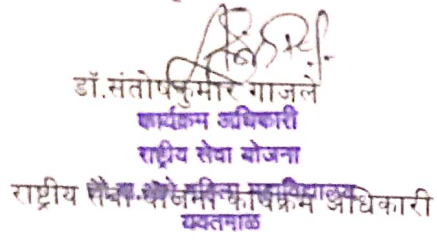 डॉ.संतोषकुमार गाजले
कार्यक्रम अधिकारी
राष्ट्रीय सेवा योजना
राष्ट्रीय सेवा योजना कार्यक्रम अधिकारी
यवतमाळ